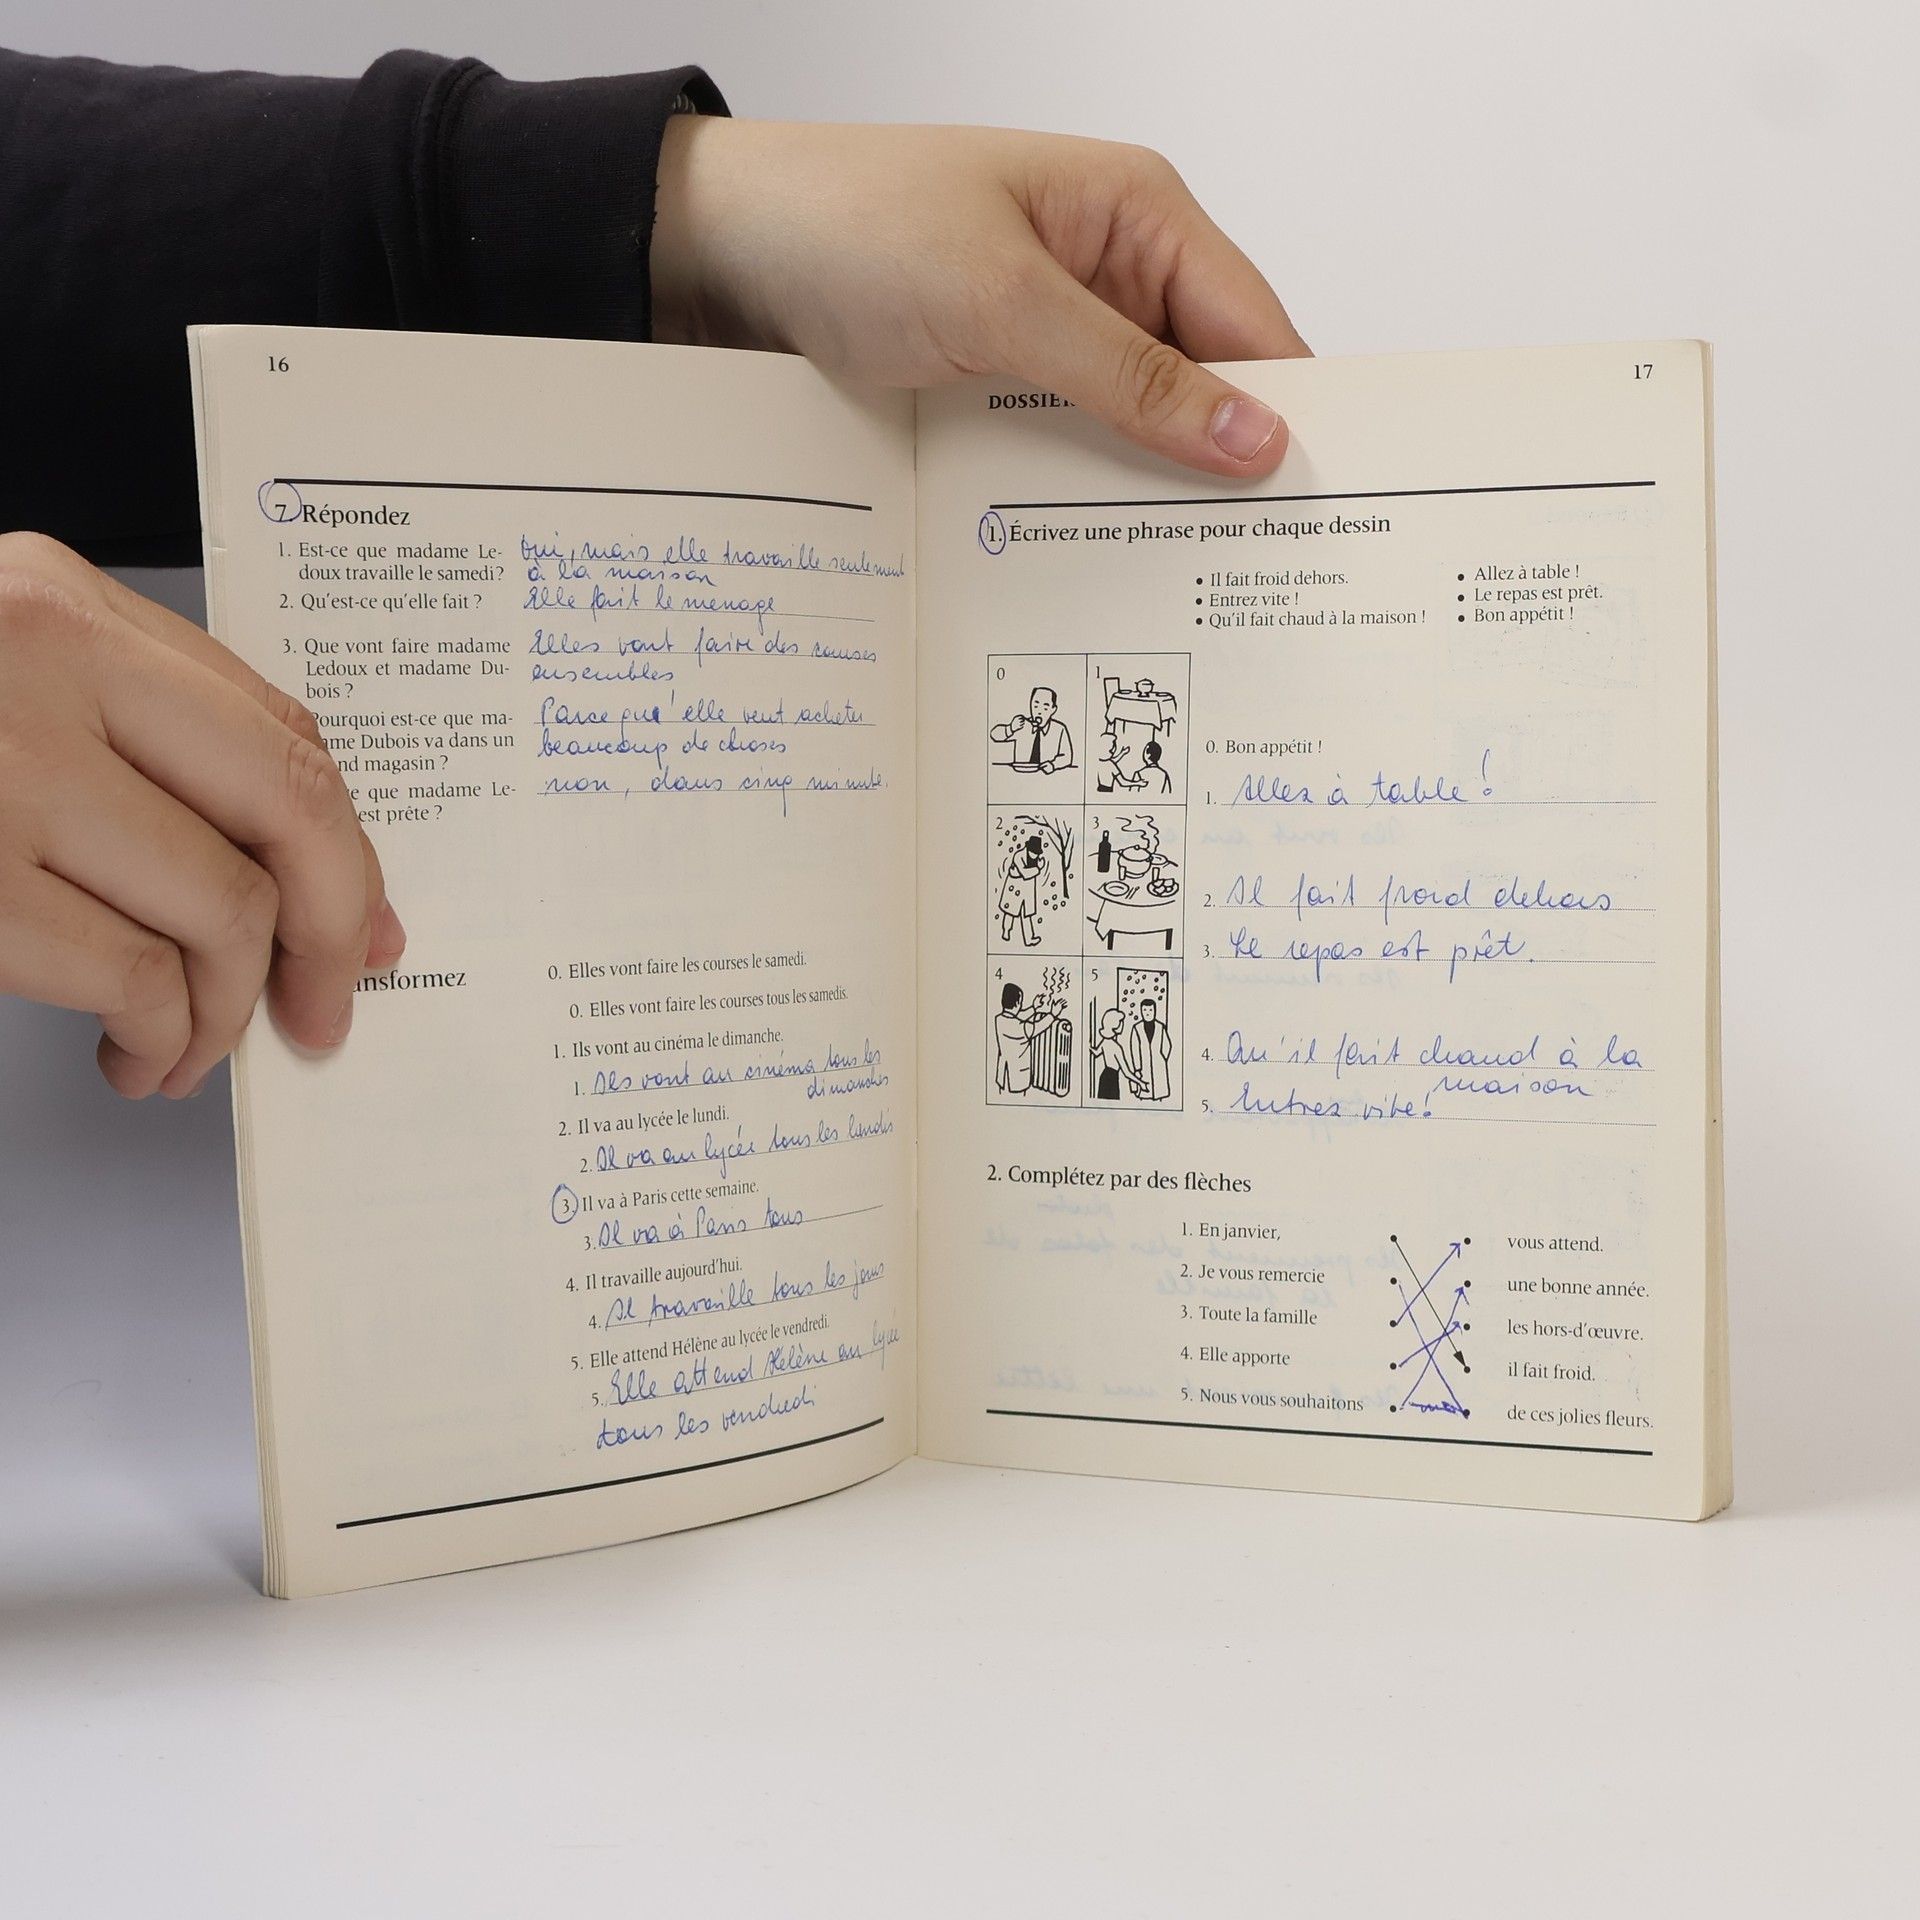 16
7. Répondez
1. Est-ce que madame Le-
doux travaille le samedi?
oui, mais elle travaille seulement
à la maison
2. Qu'est-ce qu'elle fait ?
Elle fait le menage
3. Que vont faire madame
Ledoux et madame Du-
bois ?
Elles vont faire des courses
ensembles
Pourquoi est-ce que ma-
me Dubois va dans un
nd magasin ?
Parce que' elle veut acheter
beaucoup de choses
e que madame Le-
est prête ?
non, dans cinq minute.
ansformez
0. Elles vont faire les courses le samedi.
0. Elles vont faire les courses tous les samedis.
1. Ils vont au cinéma le dimanche.
1. Ils vont au cinéma tous les
dimanches
2. Il va au lycée le lundi.
2. Il va au lycée tous les lundis
3. Il va à Paris cette semaine.
3. Il va à Paris tous
4. Il travaille aujourd'hui.
4. Il travaille tous les jours
5. Elle attend Hélène au lycée le vendredi.
5. Elle attend Hélène au lycée
tous les vendredi
17
DOSSIER
1. Écrivez une phrase pour chaque dessin
• Il fait froid dehors.
• Entrez vite !
• Qu'il fait chaud à la maison !
• Allez à table !
• Le repas est prêt.
• Bon appétit !
0
1
2
3
4
5
0. Bon appétit !
1. Allez à table !
2. Il fait froid dehors
3. Le repas est prêt.
4. Qu'il fait chaud à la
maison
5. Entrez vite!
2. Complétez par des flèches
1. En janvier,
2. Je vous remercie
3. Toute la famille
4. Elle apporte
5. Nous vous souhaitons
vous attend.
une bonne année.
les hors-d'œuvre.
il fait froid.
de ces jolies fleurs.